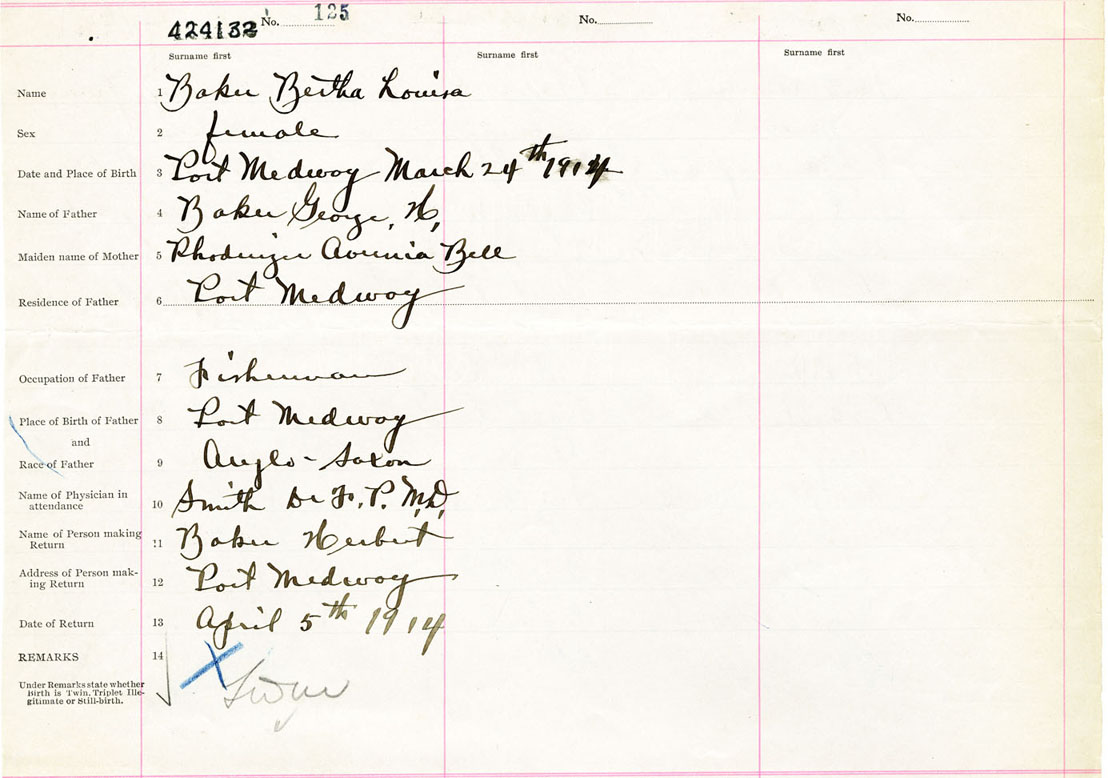 424132 No. 125 No. No.
Surname first Surname first Surname first
Name 1 Baker Bertha Louisa
Sex 2 female
Date and Place of Birth 3 Port Medway March 24th 1914
Name of Father 4 Baker George, H,
Maiden name of Mother 5 Rhodenizer Avenia Bell
Residence of Father 6 Port Medway
Occupation of Father 7 Fisherman
Place of Birth of Father 8 Port Medway
and
Race of Father 9 Anglo-Saxon
Name of Physician in
attendance 10 Smith Dr F. P. M,D,
Name of Person making
Return 11 Baker Herbert
Address of Person mak-
ing Return 12 Port Medway
Date of Return 13 April 5th 1914
REMARKS 14
Under Remarks state whether
Birth is Twin, Triplet Ille-
gitimate or Still-birth.